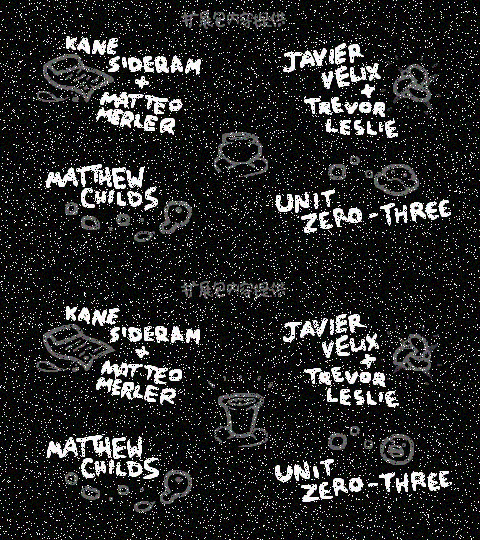 扩展包内容提供
KANE
SIDERAM
+
MATTEO
MERLER
JAVIER
VELIX
+
TREVOR
LESLIE
MATTHEW
CHILDS
UNIT
ZERO-THREE
扩展包内容提供
KANE
SIDERAM
+
MATTEO
MERLER
JAVIER
VELIX
+
TREVOR
LESLIE
MATTHEW
CHILDS
UNIT
ZERO-THREE